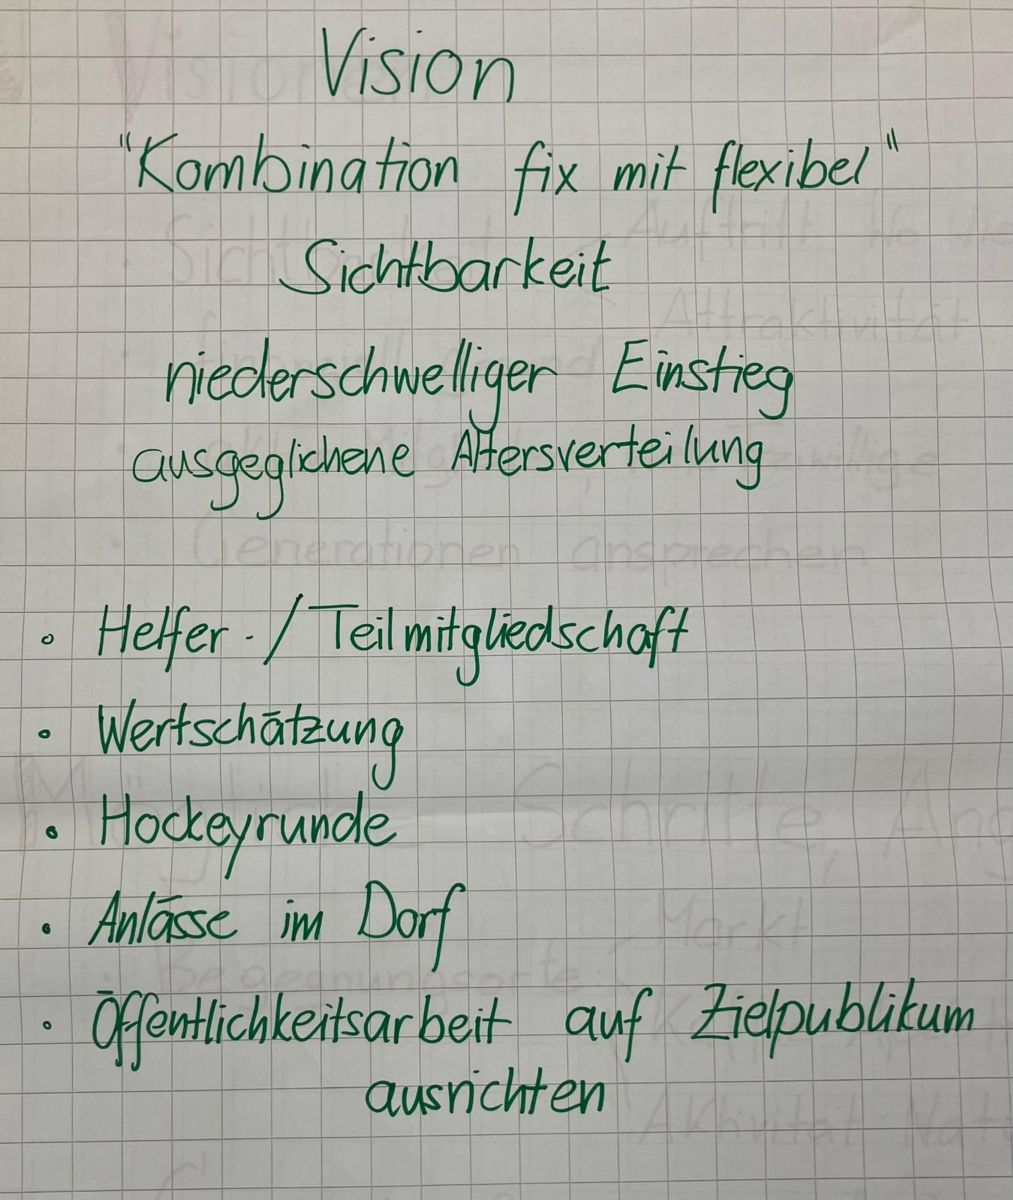 Vision
"Kombination fix mit flexibel"
Sichtbarkeit
niederschwelliger Einstieg
ausgeglichene Altersverteilung
• Helfer-/Teilmitgliedschaft
• Wertschätzung
• Hockeyrunde
• Anlässe im Dorf
• Öffentlichkeitsarbeit auf Zielpublikum
ausrichten